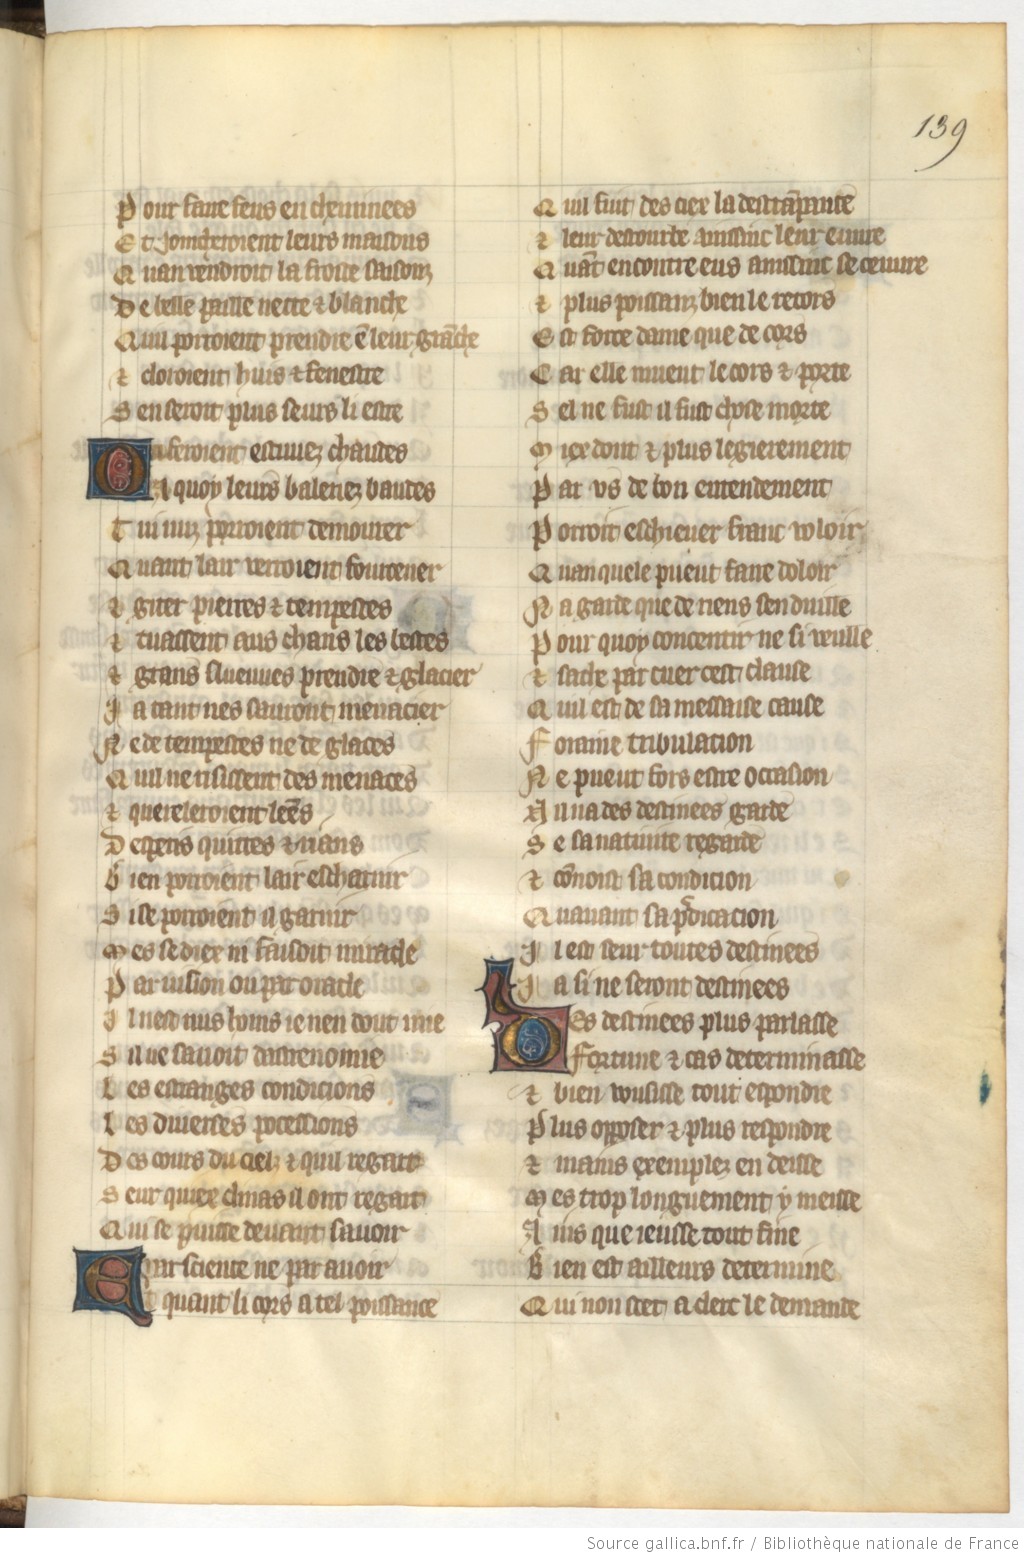 139
Pour faire feus en cheminees
Et joncheroient leurs maisons
Quan vendroit la froide saisonz
De belle paille nette & blanche
Quil portoient prendre ē leur grāche
& cloroient huis & fenestre
Sen seroit plus seurs li estre
Ou feroient estuuez chaudes
A quoy leurs balenez baudes
Tui nuz porroient demourer
Quant lair verroient fourcener
& giter pierres & tempestes
& tuassent aus chans les bestes
& grans flueuues prendre & glacier
Ja tant nes sauront menacier
Ne de tempestes ne de glaces
Quil ne risissent des menaces
& queroleroient leēs
Des peris quittes & rians
Bien porroient lair escharnir
Si se porroient il garnir
Mes se diex ni faisoit miracle
Par vision ou par oracle
Il nest nus homs ie nen dout mie
Sil ne sauoit dastrenomie
Les estranges condicions
Les diuerses pocessions
Des cours du ciel & quil regart
Seur quiex climas il ont regart
Qui se puisse deuant sauoir
Par science ne par auoir
Et quant li cors a tel poissance
Quil fuit des ciex la destrāpance
& leur destourbe ainsinc leur euure
Quāt encontre eus ainsinc se ceuure
& plus poissanz bien le recors
Est force dame que de cors
Car elle muent le cors & porte
Sel ne fust il fust chose morte
Miex dont & plus legierement
Par us de bon entendement
Porroit eschieuer franc voloir
Quanquele pueut faire doloir
Na garde que de riens sen duille
Pour quoy concentir ne si veulle
& sache par cuer cest clause
Quil est de sa mesaise cause
Foraine tribulation
Ne pueut fors estre occasion
Nil na des destinees garde
Se sa natiuite regarde
& cōnoist sa condicion
Quauant sa p̄dicacion
Il est seur toutes destinees
Ja si ne seront destinees
Des destinees plus parlasse
Fortune & cas determinasse
& bien vousisse tout espondre
Plus opposer & plus respondre
& mains exemplez en deisse
Mes trop longuement y meisse
Ains que ieusse tout fine
Bien est ailleurs determine
Qui non scet a clerc le demande
Source gallica.bnf.fr / Bibliothèque nationale de France